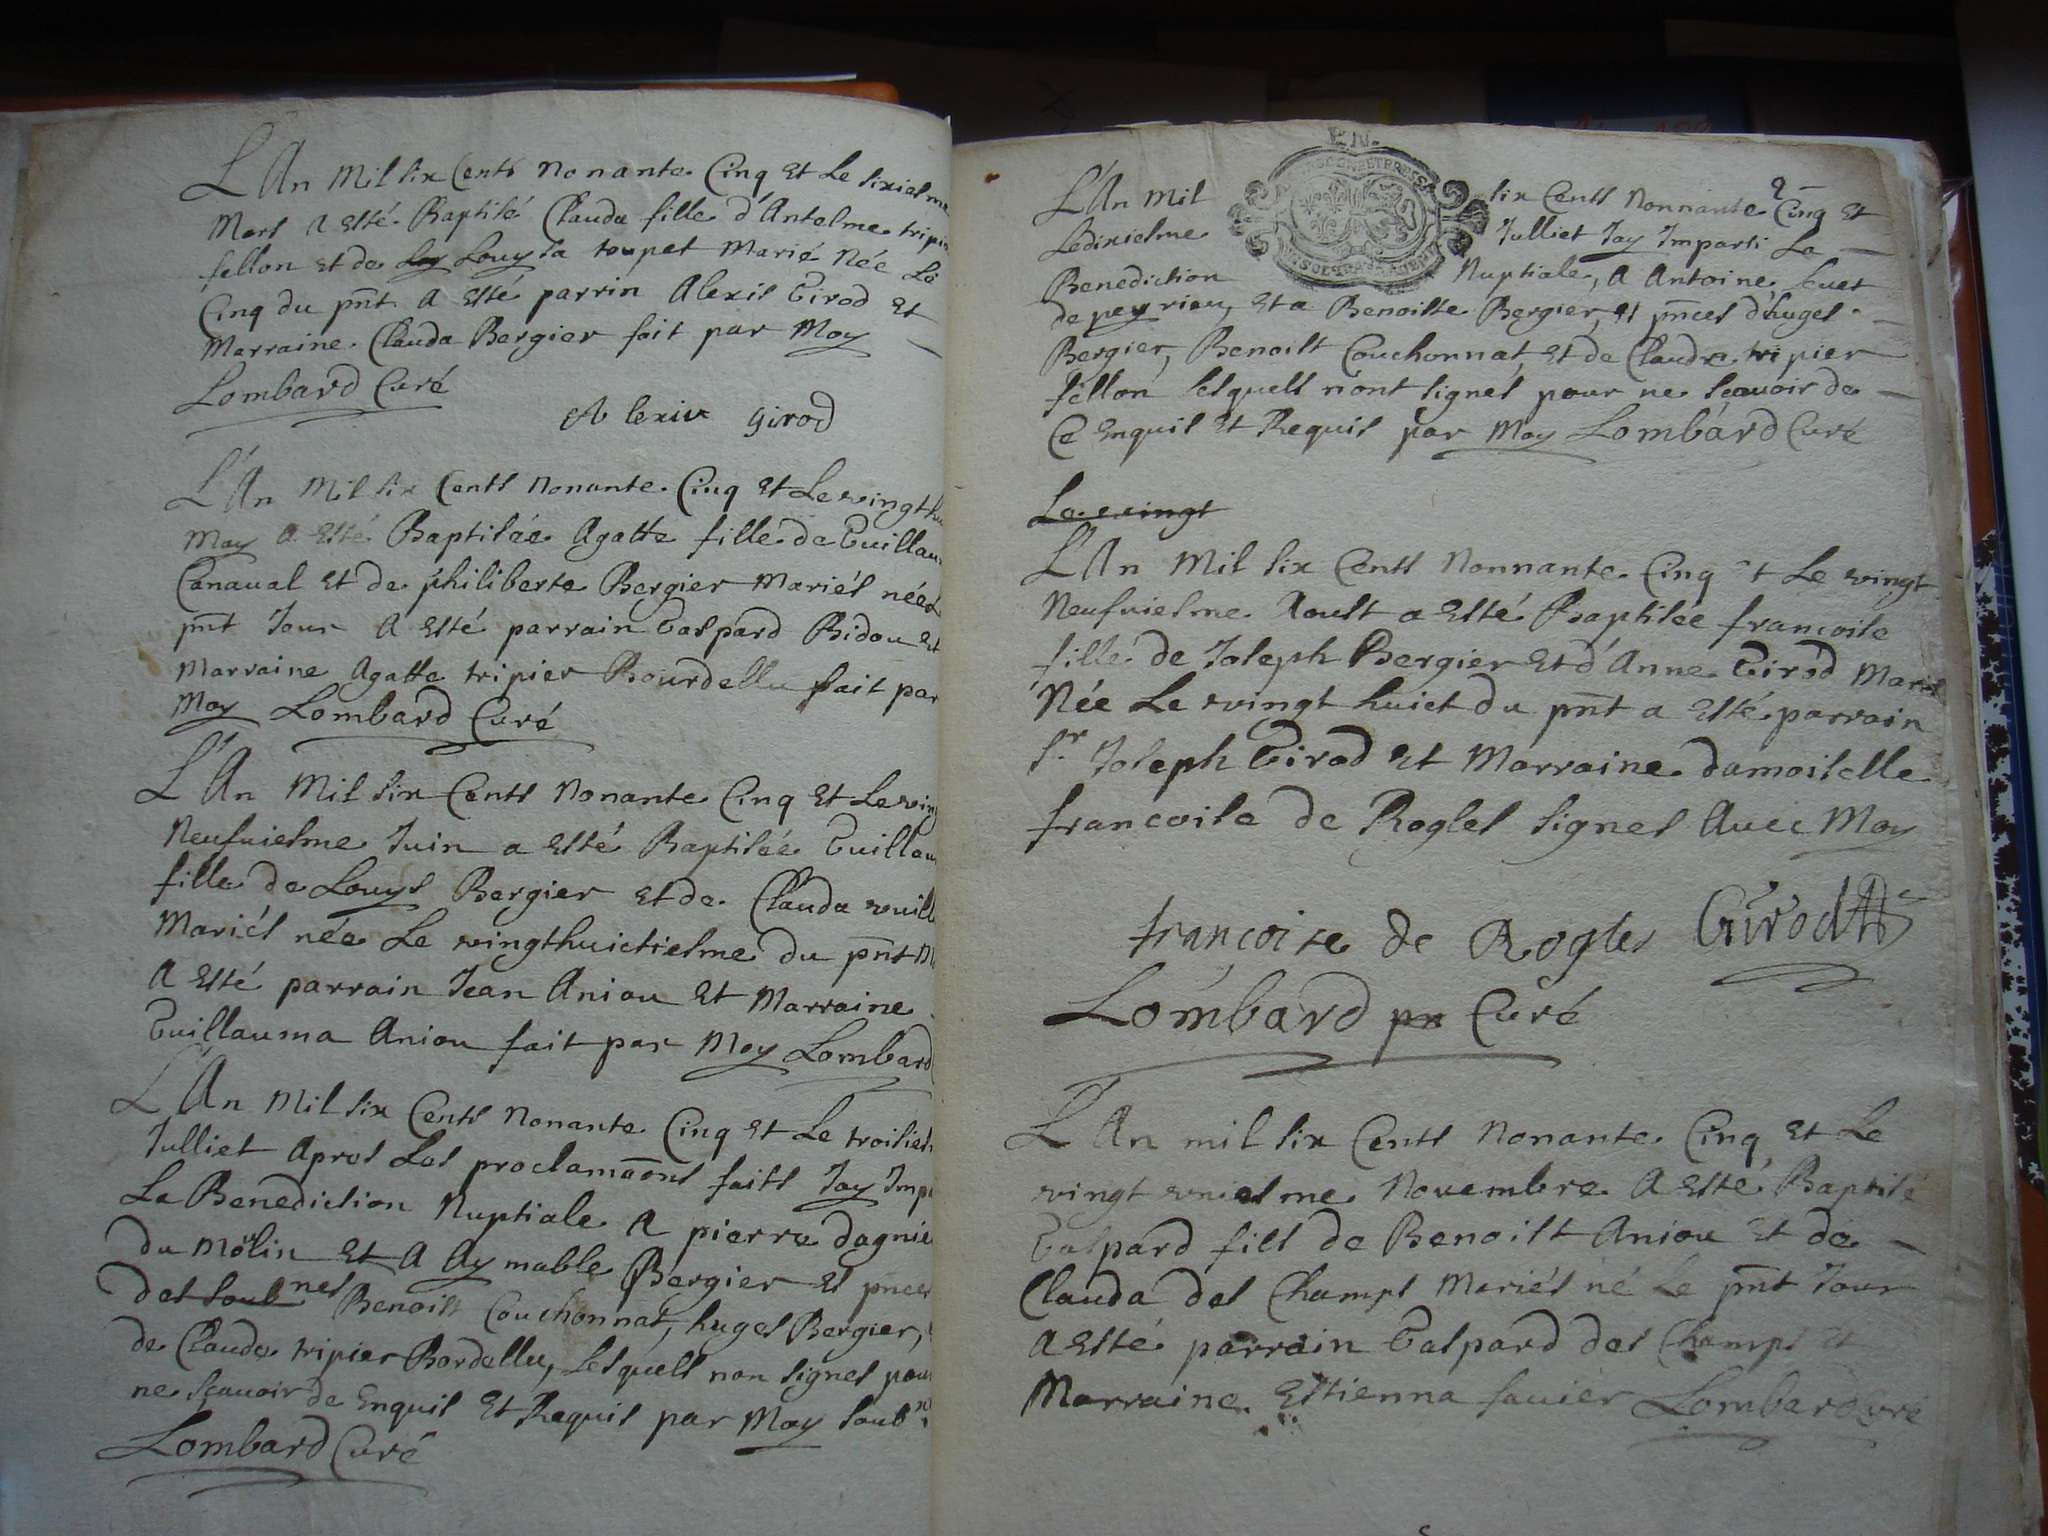 L'An Mil six Cents Nonante Cinq Et Le sixiesme
Mars A Esté Baptisé Clauda fille d'Antelme tripier
fellon et de Louysa toupet Marié Née Le
Cinq du pnt A Esté parrin Alexis Girod Et
Marraine Clauda Bergier fait par Moy
Lombard Curé
Alexix girod
L'An Mil six Cents Nonante Cinq Et Le vingt
May A Esté Baptisée Agatte fille de Guillau
Canaual Et de philiberte Bergier Mariés née
pnt Jour A Esté parrain Gaspard Bidou Et
Marraine Agatte tripier Bourdellu fait par
Moy Lombard Curé
L'An Mil six Cents Nonante Cinq Et Le vin
Neufuiesme Juin a Esté Baptisée Guillau
fille de Louys Bergier et de Clauda vuill
Mariés née Le vingthuictiesme du pnt M
A Esté parrain Jean Aniou Et Marraine
Guillauma Aniou fait par Moy Lombard
L'An Mil six Cents Nonante Cinq Et Le troisies
Julliet Apres Les proclamaons faits Jay Imp
La Benediction Nuptiale A pierre dagnie
du Molin Et A Aymable Bergier Es pnces
des soub nes Benoist Couchonnat, huges Bergier,
de Claude tripier Bordellu, Lesquels non signes pour
ne sçauoir de Enquis Et Requis par Moy soub
Lombard Curé
2
L'An Mil six Cents Nonnante Cinq Et
Ledixiesme Julliet Jay Imparti La
Benediction Nuptiale, A Antoine seuet
de peyrieu, Et a Benoitte Bergier, Es pnces d'huges
Bergier, Benoist Couchonnat, et de Claude tripier
fellon lesquels n'ont signes pour ne sçauoir de
Ce Enquis Et Requis par Moy Lombard Curé
Le vingt
L'An Mil six Cents Nonnante Cinq Et Le vingt
Neufuiesme Aoust a Esté Baptisée francoise
fille de Joseph Bergier Et d'Anne Girod Mariés
Née Le vingt huict du pnt a Esté parrain
Sr Joseph Girod Et Marraine damoiselle
francoise de Rogles signes Auec Moy
françoise de Rogles Girod
Lombard Curé
L'An mil six Cents Nonante Cinq Et Le
vingt vniesme Nouembre A Esté Baptisé
Gaspard fils de Benoist Aniou Et de
Clauda des Champs Mariés né Le pnt Jour
A Esté parrain Gaspard des Champs Et
Marraine Estienna sauier Lombard curé